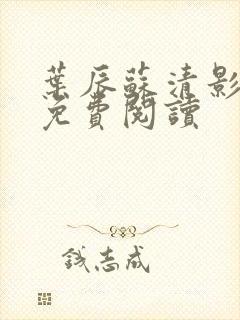 葉辰蘇清影
免費閱讀
錢志成